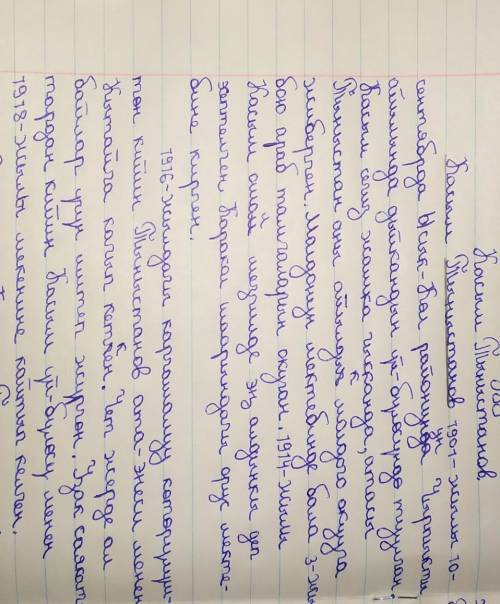 Касым Тыныстанов
Касым Тыныстанов 1901-жылы 10-
сентябрда Ысык-Көл районунда Чырпыкты
айылында дыйкандын үй-бүлөсүндө туулган.
Касым сегиз жашка чыкканда, атасы
Тыныстан аны айылдык молдого окууга
жиберген. Молдонун мектебинде бала 3-жы
бою араб тамгаларын окуган. 1914-жылы
Касым ошол мезгилде эң алдыңкы деп
эсептелген Каракол шаарындагы орус мекте-
бине кирген.
1916-жылдагы каргашалуу көтөрүлүш-
төн кийин Тыныстанов ата-энеси менен
Кытайга качып кеткен. Чет жерде ал
байлар үчүн иштеп жүргөн. Узак саякат
тардан кийин Касым үй-бүлөсү менен
1918-жылы мекенине кайтып келген.